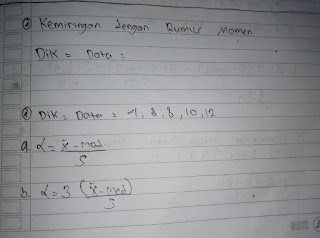 ② Kemiringan dengan Rumus Momen
Dik = Data :
② Dik = Data = 4, 8, 8, 10, 12
a. α = x̄ - mod
S
b. α = 3 (x̄ - med)
S